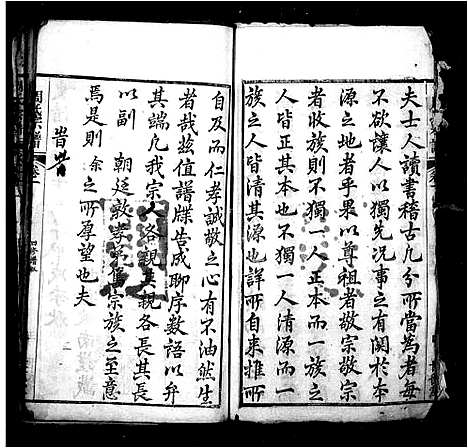 夫士人讀書稽古凡分所當為者每
不欲讓人以獨先況事之有關於本
源之地者乎果以尊祖者敬宗敬宗
者收族則不獨一人正本而一族之
人皆正其本也不獨一人清源而一
族之人皆清其源也詳所自來推所
自及而仁孝誠敬之心有不油然生
者哉茲值譜牒告成聊序數語以弁
其端凡我宗人各親其親各長其長
以副 朝廷敦孝弟睦宗族之至意
焉是則 余之所厚望也夫
譜